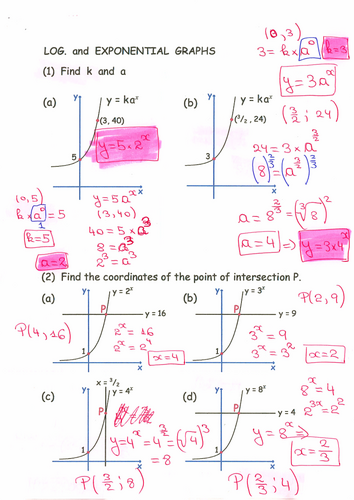 (0, 3)
3 = k × a⁰ k=3
y = 3aˣ
LOG. and EXPONENTIAL GRAPHS
(1) Find k and a
(a) y y = kaˣ
(3, 40)
y = 5 × 2ˣ
5
x
(b) y y = kaˣ
(³/₂ , 24)
3
x
(3/2 ; 24)
24 = 3 × a^(3/2)
(8)^(2/3) = (a^(3/2))^(2/3)
a = 8^(2/3) = (∛8)²
a = 4 ⇒ y = 3×4ˣ
(0, 5)
k × a⁰ = 5
1
k = 5
a = 2
y = 5aˣ
(3, 40)
40 = 5 × a³
8 = a³
2³ = a³
(2) Find the coordinates of the point of intersection P.
(a) y y = 2ˣ
P
y = 16
1
x
P(4, 16)
2ˣ = 16
2ˣ = 2⁴
x = 4
(b) y y = 3ˣ
P
y = 9
1
x
P(2, 9)
3ˣ = 9
3ˣ = 3²
x = 2
(c) y x = ³/₂
y = 4ˣ
P
1
x
y = 4ˣ = 4^(3/2) = (√4)³
= 8
P(3/2 ; 8)
(d) y y = 8ˣ
P
y = 4
1
x
8ˣ = 4
2³ˣ = 2²
y = 8ˣ ⇒
x = 2/3
P(2/3 ; 4)